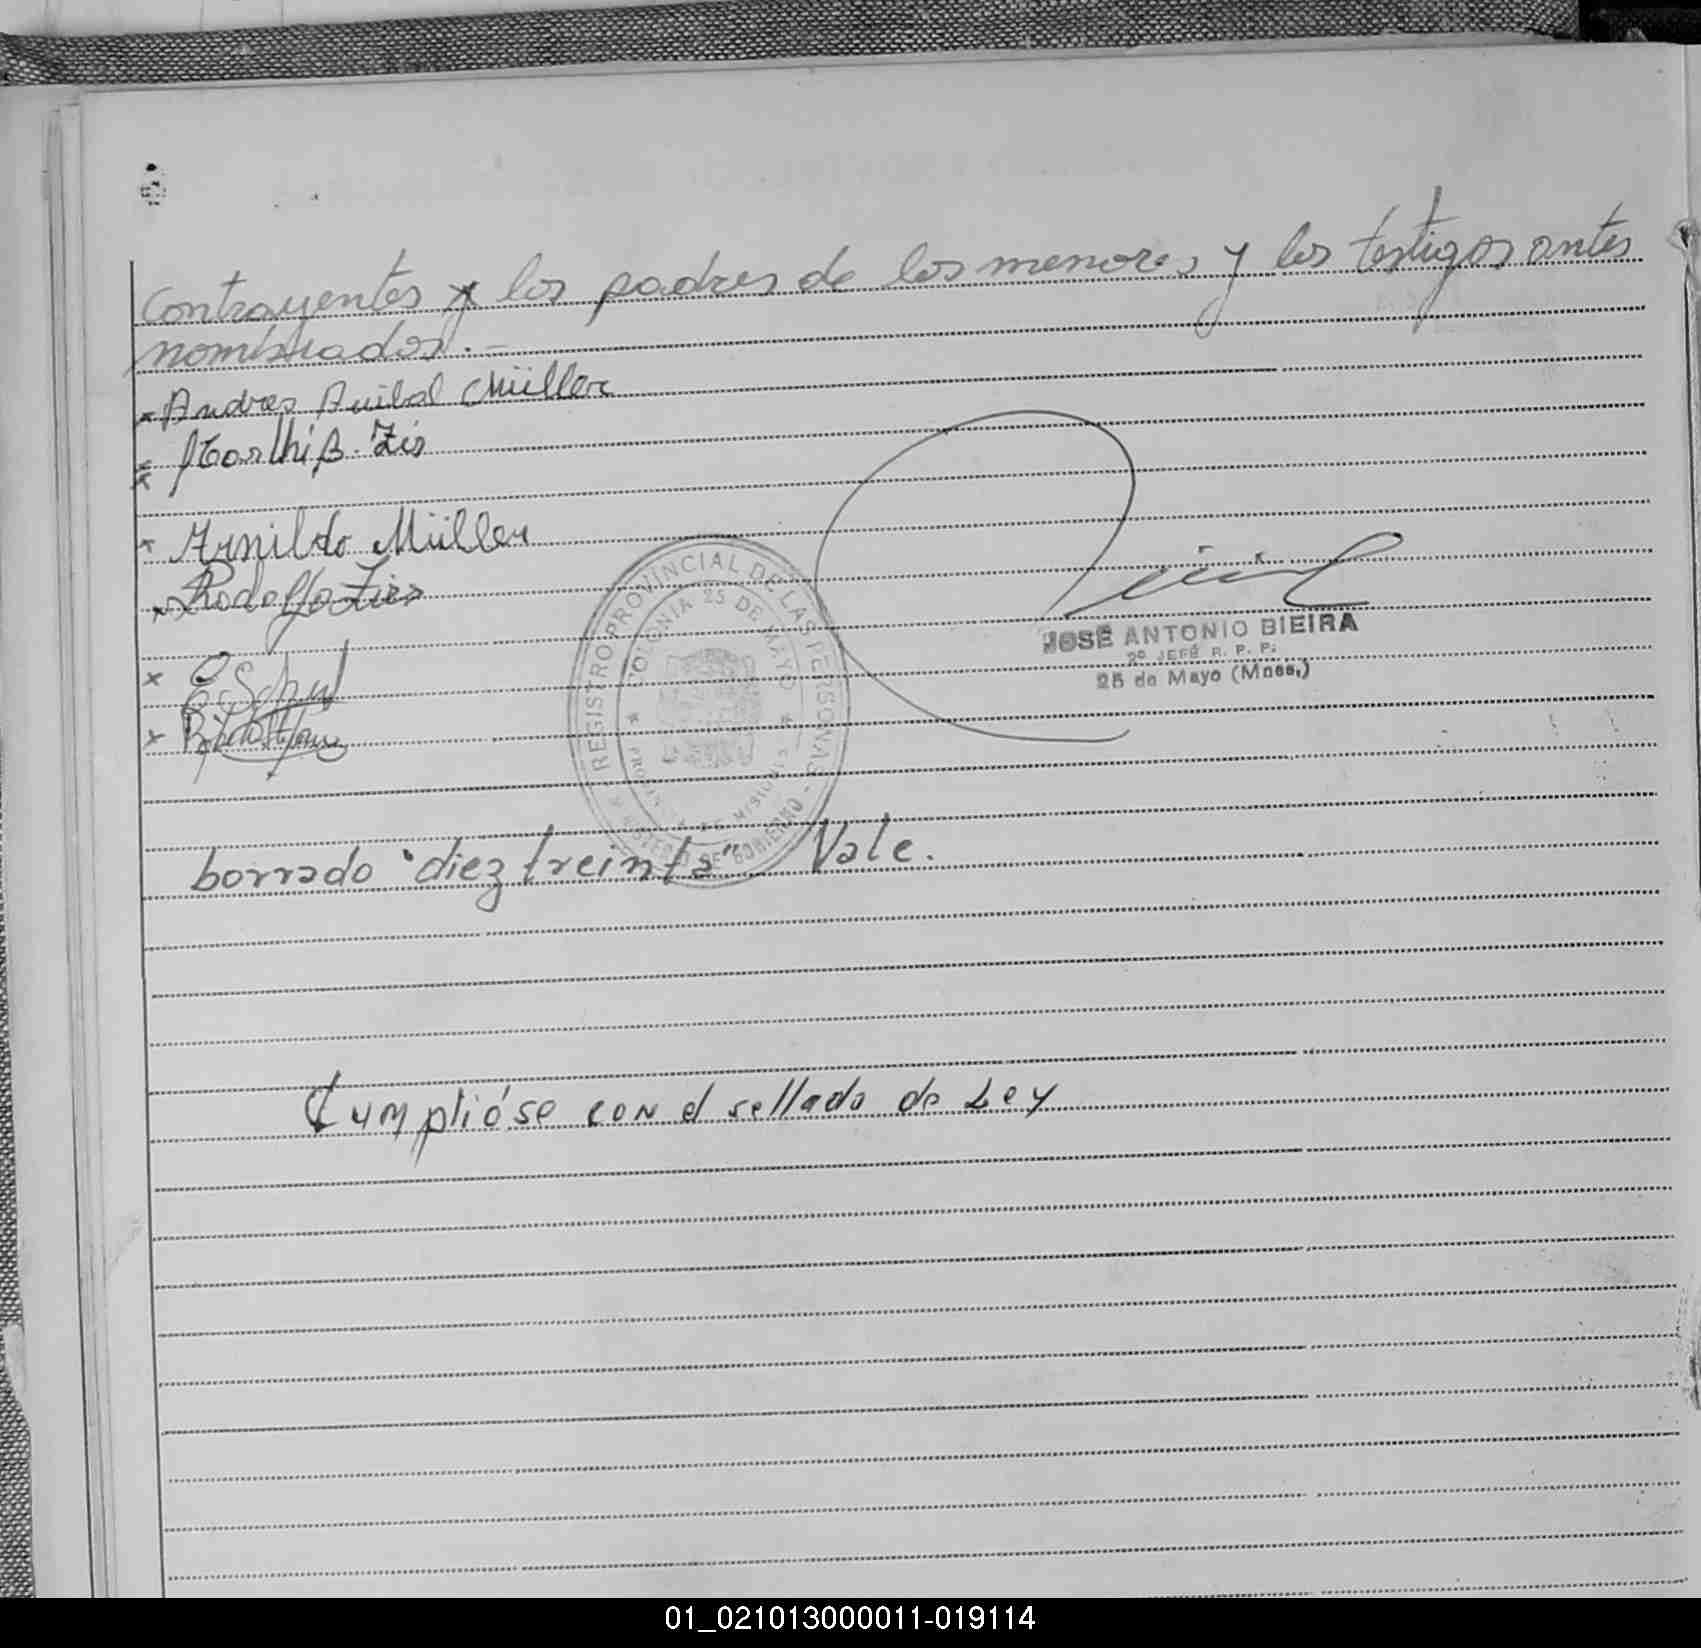 contrayentes y los padres de los menores, y los testigos antes
nombrados.-
x Andres Anibal Müller
x Zis
x Arnildo Müller
x Rodolfo Zies
x
x
REGISTRO PROVINCIAL DE LAS PERSONAS
COLONIA 25 DE MAYO
MINISTERIO DE GOBIERNO
PROVINCIA DE MISIONES
JOSÉ ANTONIO BIEIRA
2º JEFE R. P. P.
25 de Mayo (Mnes.)
borrado "diez treinta" Vale.
Cumplióse con el sellado de Ley
01_021013000011-019114